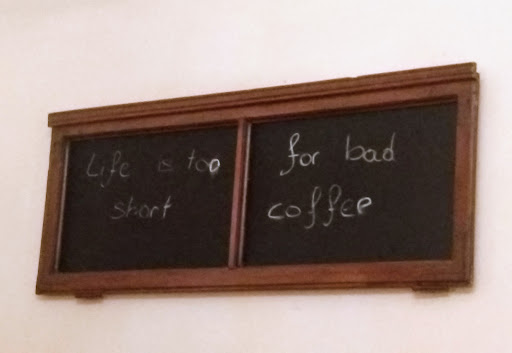 Life is too
short
for bad
coffee